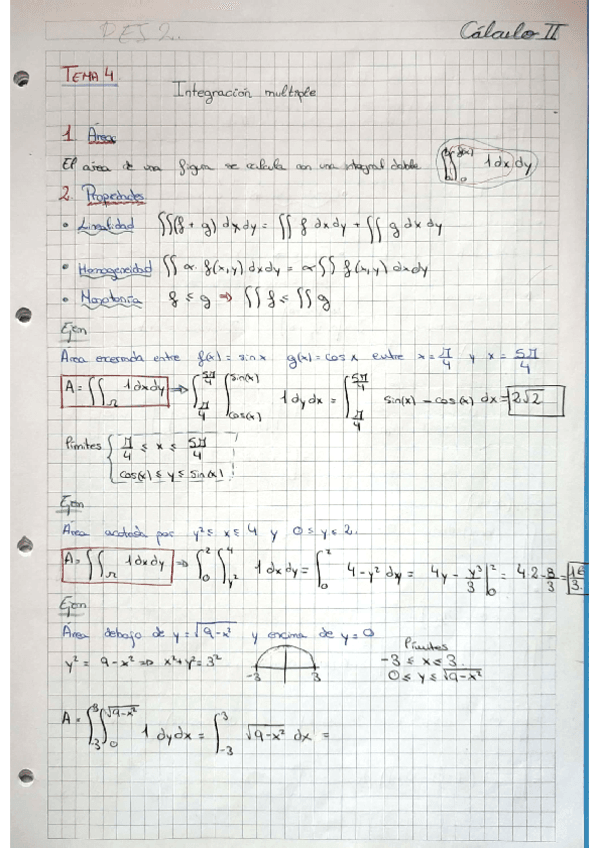 DES 2.
Cálculo II
TEMA 4
Integración multiple
1. Áreas
El area de una figura se calcula con una integral doble ∫_a^b ∫_0^f(x) 1 dx dy
2. Propiedades
• Linealidad ∬(f + g) dx dy = ∬ f dx dy + ∬ g dx dy
• Homogeneidad ∬ α · f(x,y) dx dy = α ∬ f(x,y) dx dy
• Monotonía f ≤ g ⇒ ∬ f ≤ ∬ g
Ejem
Área encerrada entre f(x) = sin x g(x) = cos x entre x = π/4 y x = 5π/4
A = ∬_Ω 1 dx dy ⇒ ∫_{π/4}^{5π/4} ∫_{cos(x)}^{sin(x)} 1 dy dx = ∫_{π/4}^{5π/4} sin(x) - cos(x) dx = 2√2
límites { π/4 ≤ x ≤ 5π/4
cos(x) ≤ y ≤ sin(x)
Ejem
Área acotada por y² ≤ x ≤ 4 y 0 ≤ y ≤ 2.
A = ∬_Ω 1 dx dy ⇒ ∫_0^2 ∫_{y²}^4 1 dx dy = ∫_0^2 4 - y² dy = 4y - y³/3 |_0^2 = 4·2 - 8/3 = 16/3.
Ejem
Área debajo de y = √9-x² y encima de y = 0
y² = 9 - x² ⇒ x² + y² = 3²
-3 3
límites
-3 ≤ x ≤ 3.
0 ≤ y ≤ √9-x²
A = ∫_{-3}^3 ∫_0^{√9-x²} 1 dy dx = ∫_{-3}^3 √9-x² dx =